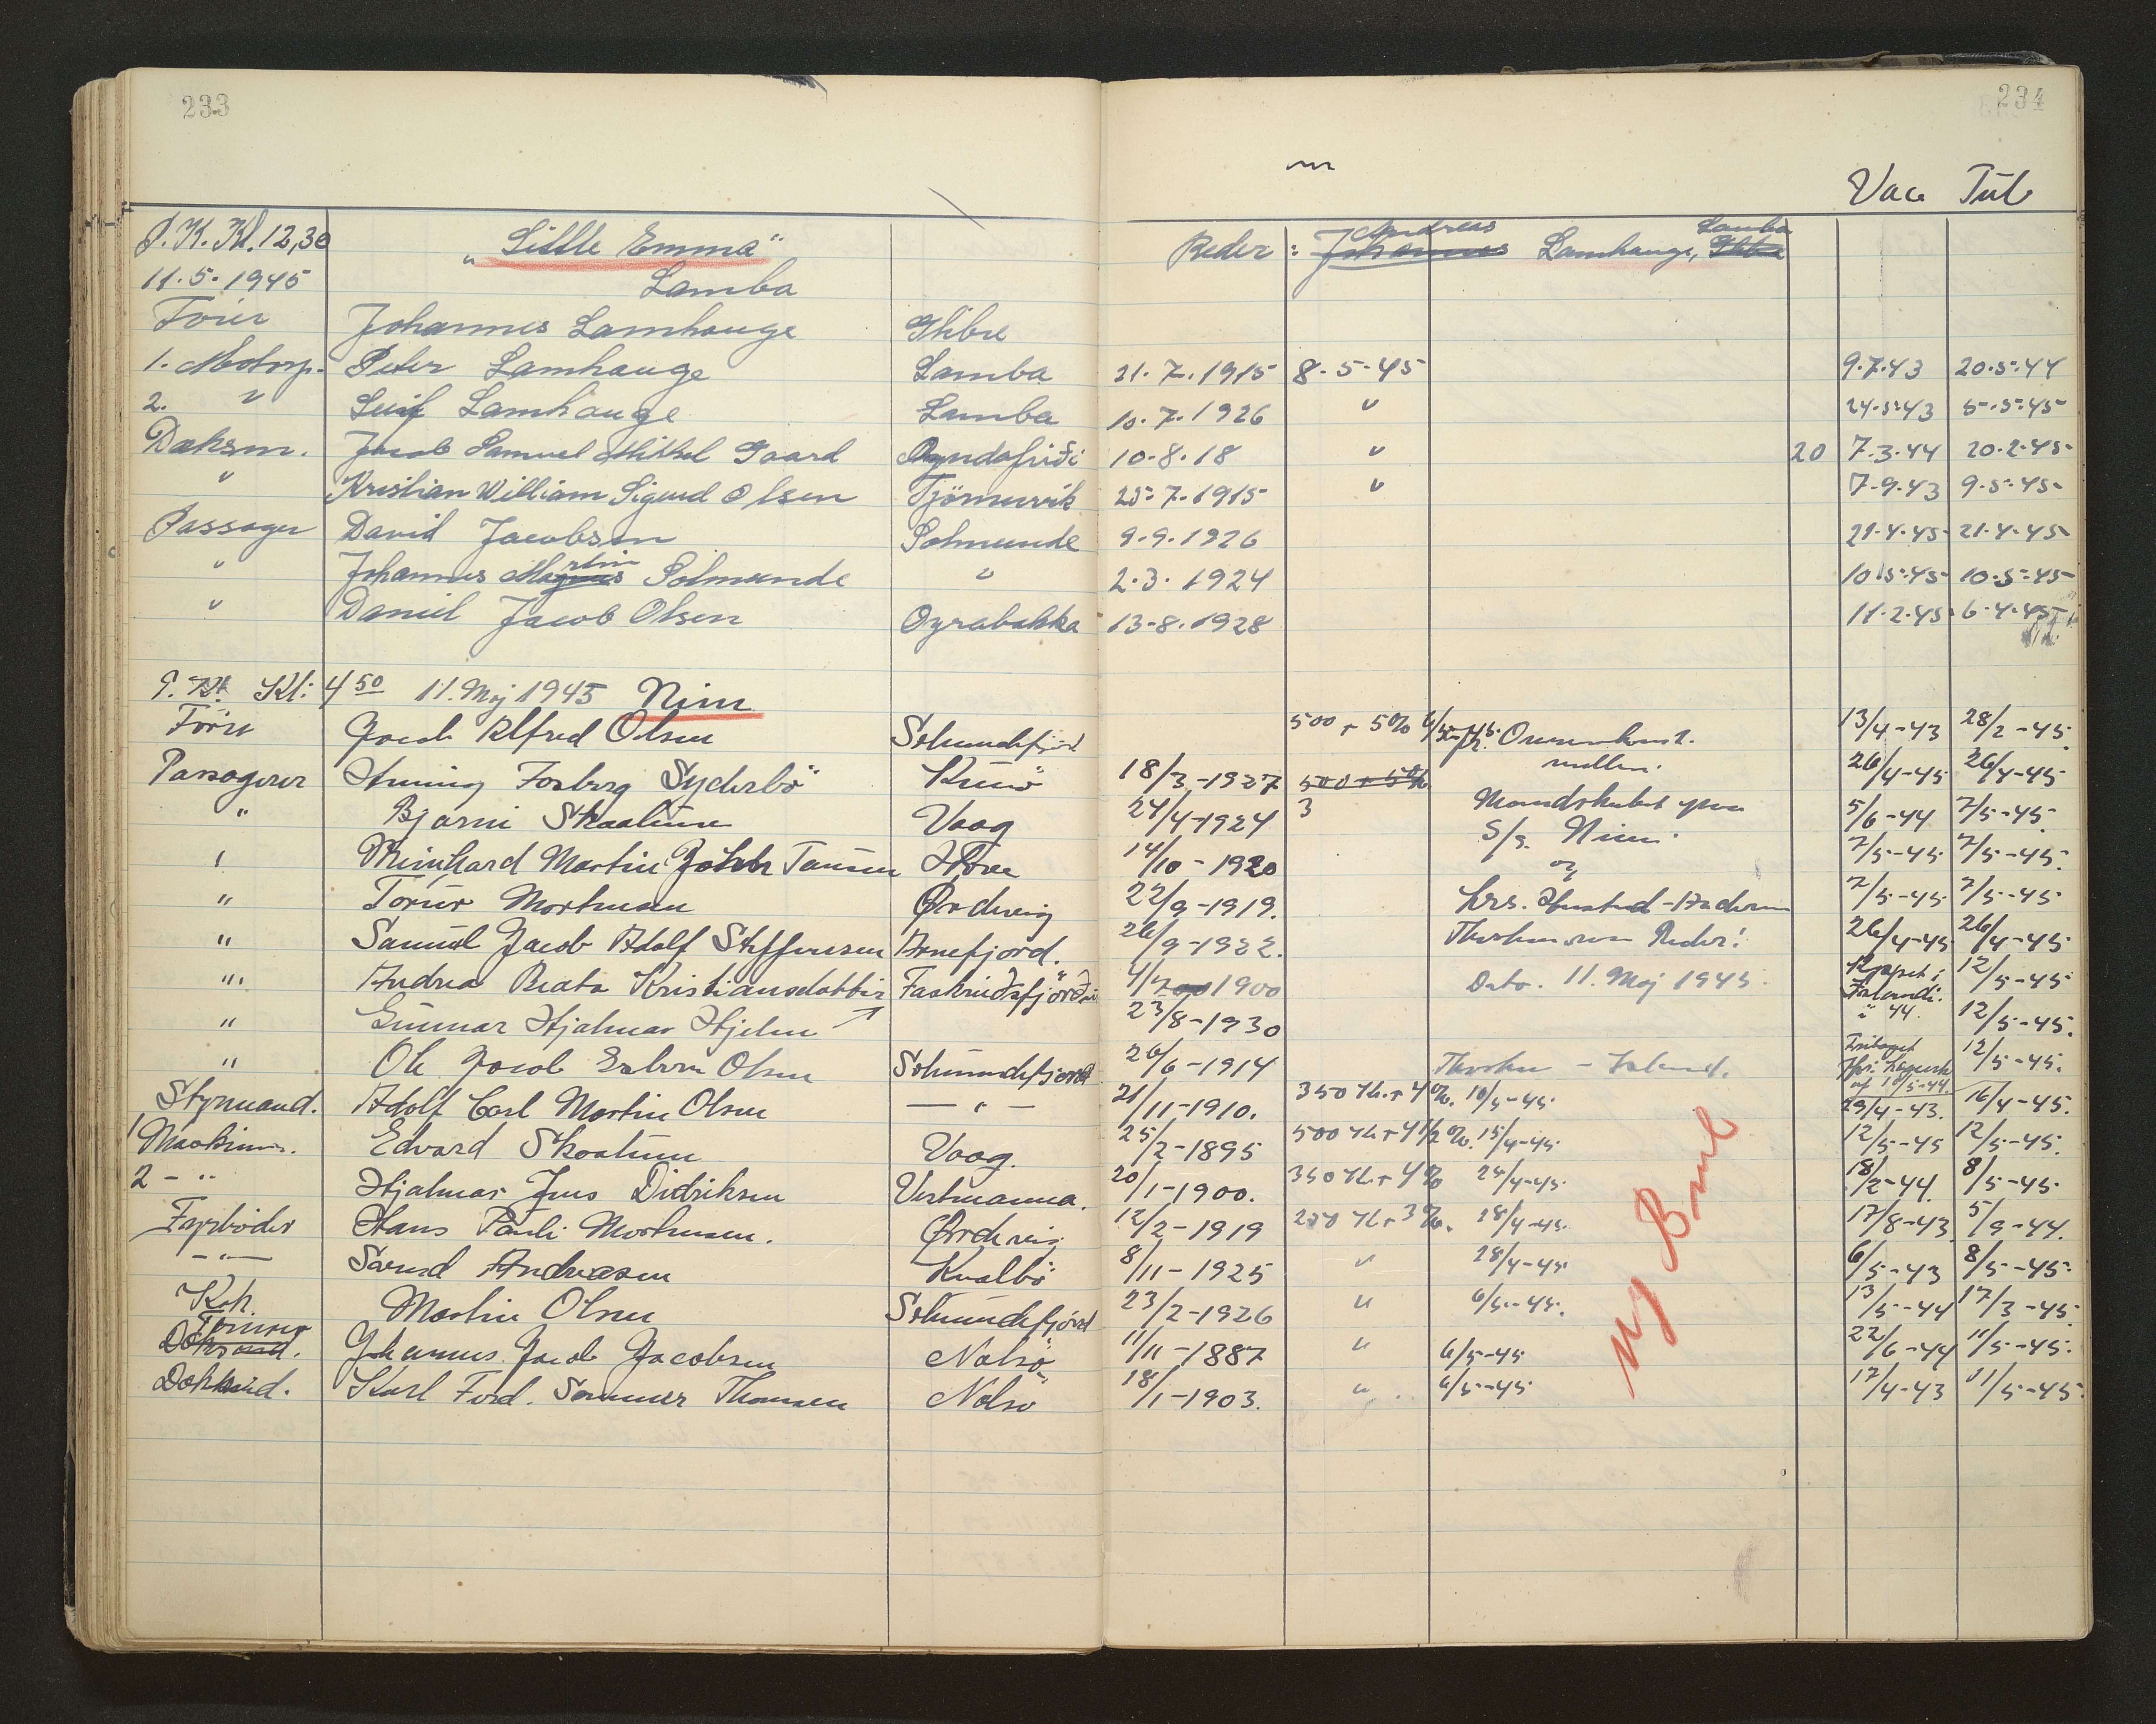 233
234
Vac Tub
P. K. Kl. 12,30 „Little Emma" Reder : Johannes Andreas Lamhauge, Glibre Lamba
11.5.1945 Lamba
Förer Johannes Lamhauge Glibre
1. Motorp. Peter Lamhauge Lamba 21.7.1915 8.5.45 9.7.43 20.5.44
2. " Leif Lamhauge Lamba 10.7.1926 " 24.5.43 5.5.45
Daksm. Jacob Samuel Mikkel Gaard Oyndafriði 10.8.18 " 20 7.3.44 20.2.45
" Kristian William Sigurd Olsen Tjörnuvik 25.7.1915 " 7.9.43 9.5.45
Passager David Jacobsen Solmunde 9.9.1926 21.4.45 21.4.45
" Johannes Magnus Martin Solmunde " 2.3.1924 10.5.45 10.5.45
" Daniel Jacob Olsen Oyrabakka 13.8.1928 11.2.45 6.4.45
P. K. Kl: 4 50 11. Maj 1945 Nim
Förer Jacob Alfred Olsen Solmundefjord 500 + 5% 6/5-45 Overenskomst 13/4-43 28/2-45
mellem
Passagerer Henning Forberg Syderbö Kunö 18/3-1927 500 + 5% 26/4-45 26/4-45
" Bjarni Skaalum Vaag 24/4-1924 3 Mandskabet paa 5/6-44 7/5-45
S/s. Nim
" Reinhard Martin Tausen Hove 14/10-1920 og 7/5-45 7/5-45
" Torur Mortensen Ørdevig 22/9-1919. 7/5-45 7/5-45
" Samuel Jacob Adolf Steffensen Arnefjord. 26/9-1922. Thorshavn Reder! 26/4-45 26/4-45
" Andrea Beata Kristiansdottir Faskrudsfjördi 4/7 1900 Dato. 11. Maj 1945. 12/5-45
" Gunnar Hjalmar Hjelm 23/8-1930 " 44 12/5-45.
" Ole Jacob Esbern Olsen Solmundefjord 26/6-1914 Thorshavn - Island. af 10/5-44. 12/5-45.
Styrmand. Adolf Carl Martin Olsen — " — 21/11-1910. 350 Kr. + 4%. 10/5-45 29/4-43. 16/4-45.
1 Maskinm. Edvard Skaalum Vaag. 25/2-1895 500 Kr + 4 1/2 %. 15/4-45 12/5-45 12/5-45.
2 - " Hjalmar Jens Didriksen Vestmanna. 20/1-1900. 350 Kr. + 4% 24/4-45 18/2-44. 8/5-45.
Fyrböder Hans Pauli Mortensen. Ørdevig 12/2-1919 250 Kr + 3%. 28/4-45 17/8-43 5/9-44.
— " — Svend Andreasen Kvalbö 8/11-1925 " 28/4-45 6/5-43 8/5-45.
Kok. Martin Olsen Solmundefjord 23/2-1926 " 6/5-45. 13/5-44 17/3-45.
Dæksmd. Tömmer Johannes Jacob Jacobsen Nolsö 11/11-1887 " 6/5-45 22/6-44 11/5-45.
Dæksmd. Karl Ferd. Sommer Thomsen Nolsö 18/1-1903. " 6/5-45 17/4-43 11/5-45